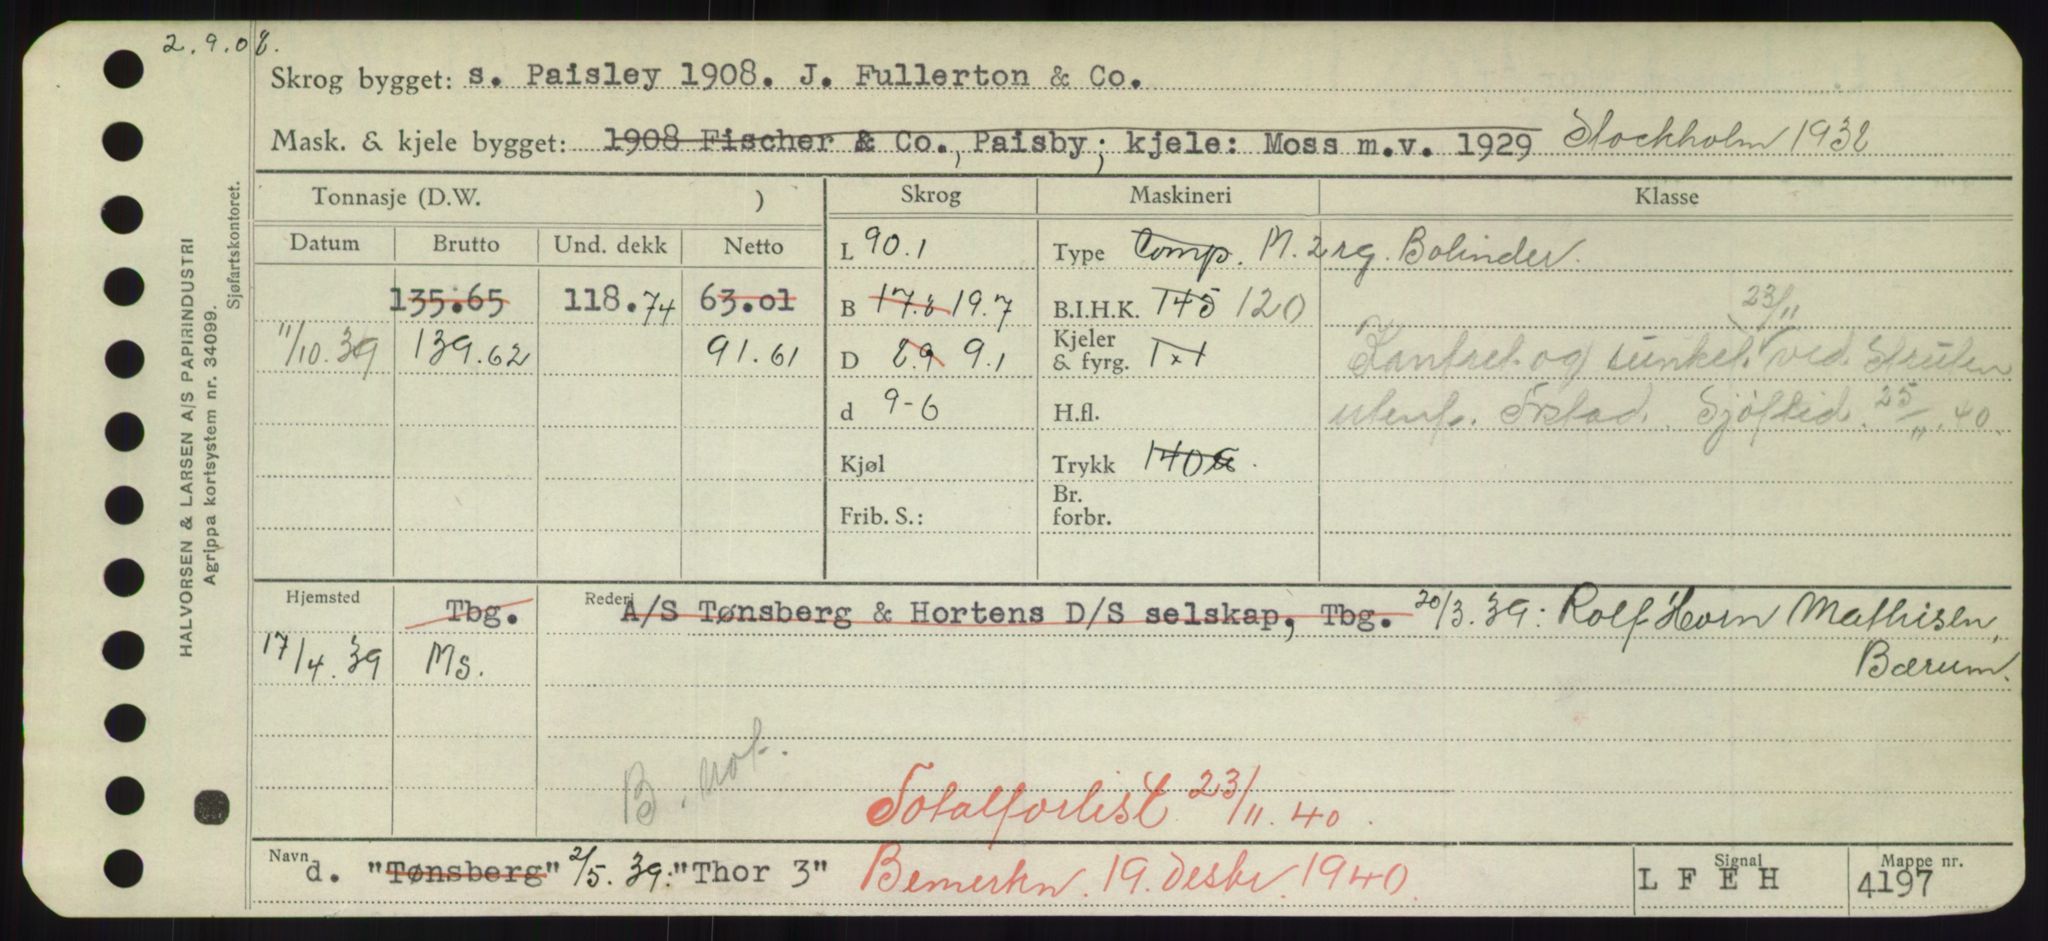 2.9.08.
Skrog bygget: s. Paisley 1908. J. Fullerton & Co.
Mask. & kjele bygget: 1908 Fischer & Co., Paisby; kjele: Moss m.v. 1929 Stockholm 1932
Tonnasje (D.W. ) Skrog Maskineri Klasse
Datum Brutto Und. dekk Netto L 90.1 Type Comp. M. 2 rg. Bolinder.
135.65 118.74 63.01 B 17.8 19.7 B.I.H.K. 145 120 23/11
11/10.39 139.62 91.61 D 8.9 9.1 Kjeler & fyrg. 1x1 Kantret og sunket ved Struten
d 9-6 H.fl. utenf. Frstad. Sjøftid. 25/11.40.
Kjøl Trykk 140
Frib. S.: Br. forbr.
Hjemsted Tbg. Rederi A/S Tønsberg & Hortens D/S selskap, Tbg. 20/3.39: Rolf Horn Mathisen,
17/4.39 Ms. Bærum.
B. not.
Totalforlist 23/11.40.
Navn d. "Tønsberg" 2/5.39: "Thor 3" Bemerkn. 19. desbr. 1940. Signal L F E H Mappe nr. 4197
HALVORSEN & LARSEN A/S PAPIRINDUSTRI
Agrippa kortsystem nr. 34099.
Sjøfartskontoret.